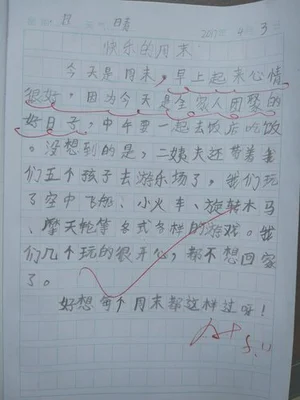 日 晴
快乐的周末
今天是周末，早上起来心情
很好，因为今天是全家人团聚的
好日子，中午要一起去饭店吃饭
。没想到的是，二姨夫还带着
们五个孩子去游乐场了，我们玩
了空中飞船、小火车、旋转木马
、摩天轮等各式各样的游戏。我
们几个玩的很开心，都不想回家
了。
好想每个周末都这样过呀！
A+